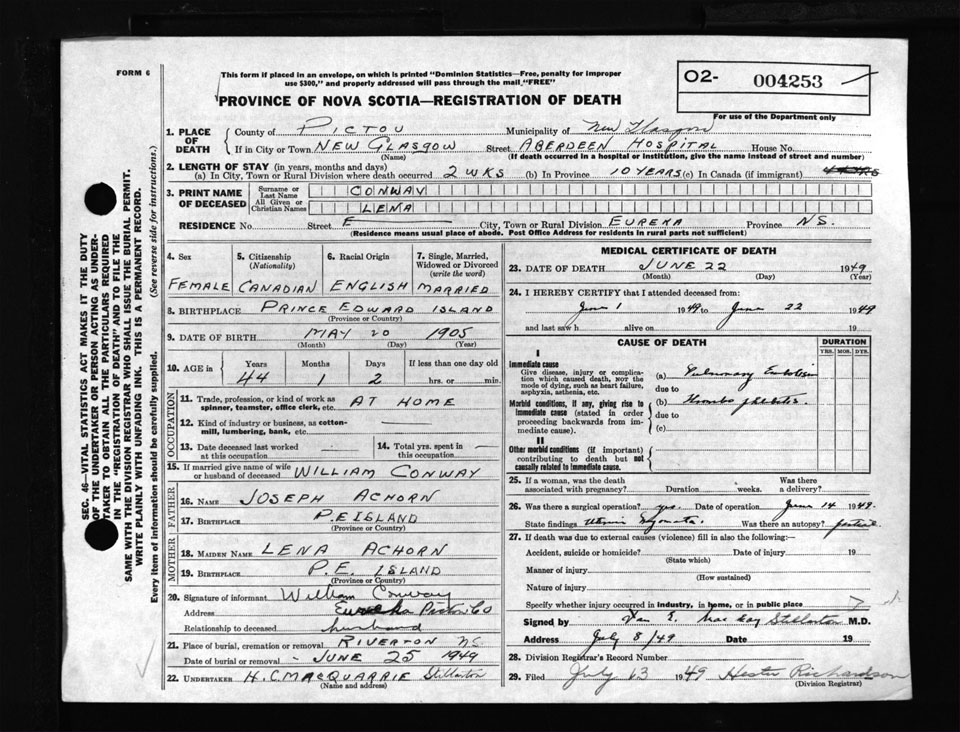 FORM 6
This form if placed in an envelope, on which is printed "Dominion Statistics—Free, penalty for improper
use $300," and properly addressed will pass through the mail "FREE"
PROVINCE OF NOVA SCOTIA—REGISTRATION OF DEATH
02- 004253
For use of the Department only
SEC. 46—VITAL STATISTICS ACT MAKES IT THE DUTY
OF THE UNDERTAKER OR PERSON ACTING AS UNDER-
TAKER TO OBTAIN ALL THE PARTICULARS REQUIRED
IN THE "REGISTRATION OF DEATH" AND TO FILE THE
SAME WITH THE DIVISION REGISTRAR WHO SHALL ISSUE THE BURIAL PERMIT.
WRITE PLAINLY WITH UNFADING INK. THIS IS A PERMANENT RECORD.
Every item of information should be carefully supplied. (See reverse side for instructions.)
1. PLACE OF DEATH
County of PICTOU Municipality of New Glasgow
If in City or Town NEW GLASGOW Street ABERDEEN HOSPITAL House No.
(Name) (If death occurred in a hospital or institution, give the name instead of street and number)
2. LENGTH OF STAY (in years, months and days)
(a) In City, Town or Rural Division where death occurred 2 WKS (b) In Province 10 YEARS (c) In Canada (if immigrant)
3. PRINT NAME OF DECEASED
Surname or Last Name CONWAY
All Given or Christian Names LENA
RESIDENCE No. Street E City, Town or Rural Division EUREKA Province N.S.
(Residence means usual place of abode. Post Office Address for residents in rural parts not sufficient)
4. Sex FEMALE
5. Citizenship (Nationality) CANADIAN
6. Racial Origin ENGLISH
7. Single, Married, Widowed or Divorced (write the word) MARRIED
8. BIRTHPLACE PRINCE EDWARD ISLAND
(Province or Country)
9. DATE OF BIRTH MAY 20 1905
(Month) (Day) (Year)
10. AGE in Years Months Days If less than one day old
44 1 2 hrs. or min.
OCCUPATION
11. Trade, profession, or kind of work as spinner, teamster, office clerk, etc. AT HOME
12. Kind of industry or business, as cotton-mill, lumbering, bank, etc.
13. Date deceased last worked at this occupation
14. Total yrs. spent in this occupation
15. If married give name of wife or husband of deceased WILLIAM CONWAY
FATHER
16. NAME JOSEPH ACHORN
17. BIRTHPLACE P.E ISLAND
(Province or Country)
MOTHER
18. MAIDEN NAME LENA ACHORN
19. BIRTHPLACE P.E. ISLAND
(Province or Country)
20. Signature of informant William Conway
Address Eureka Pictou Co
Relationship to deceased husband
21. Place of burial, cremation or removal RIVERTON N.S.
Date of burial or removal - JUNE 25 1949
22. UNDERTAKER H.C. MACQUARRIE Stellarton
(Name and address)
MEDICAL CERTIFICATE OF DEATH
23. DATE OF DEATH JUNE 22 1949
(Month) (Day) (Year)
24. I HEREBY CERTIFY that I attended deceased from:
June 1 1949 to June 22 1949
and last saw h alive on 19
CAUSE OF DEATH DURATION
YRS. MOS. DYS.
I
Immediate cause
Give disease, injury or complication which caused death, NOT the mode of dying, such as heart failure, asphyxia, asthenia, etc.
(a) Pulmonary Embolism
due to
Morbid conditions, if any, giving rise to immediate cause (stated in order proceeding backwards from immediate cause).
(b) Thrombo phlebitis.
due to
(c)
II
Other morbid conditions (if important) contributing to death but not causally related to immediate cause.
25. If a woman, was the death associated with pregnancy? Duration weeks. Was there a delivery?
26. Was there a surgical operation? yes. Date of operation June 14 1949.
State findings Was there an autopsy?
27. If death was due to external causes (violence) fill in also the following:—
Accident, suicide or homicide? Date of injury 19
(State which)
Manner of injury
(How sustained)
Nature of injury
Specify whether injury occurred in industry, in home, or in public place
Signed by Mac Kay Stellarton M.D.
Address July 8/49 Date 19
28. Division Registrar's Record Number
29. Filed July 13 1949 Hester Richardson
(Division Registrar)